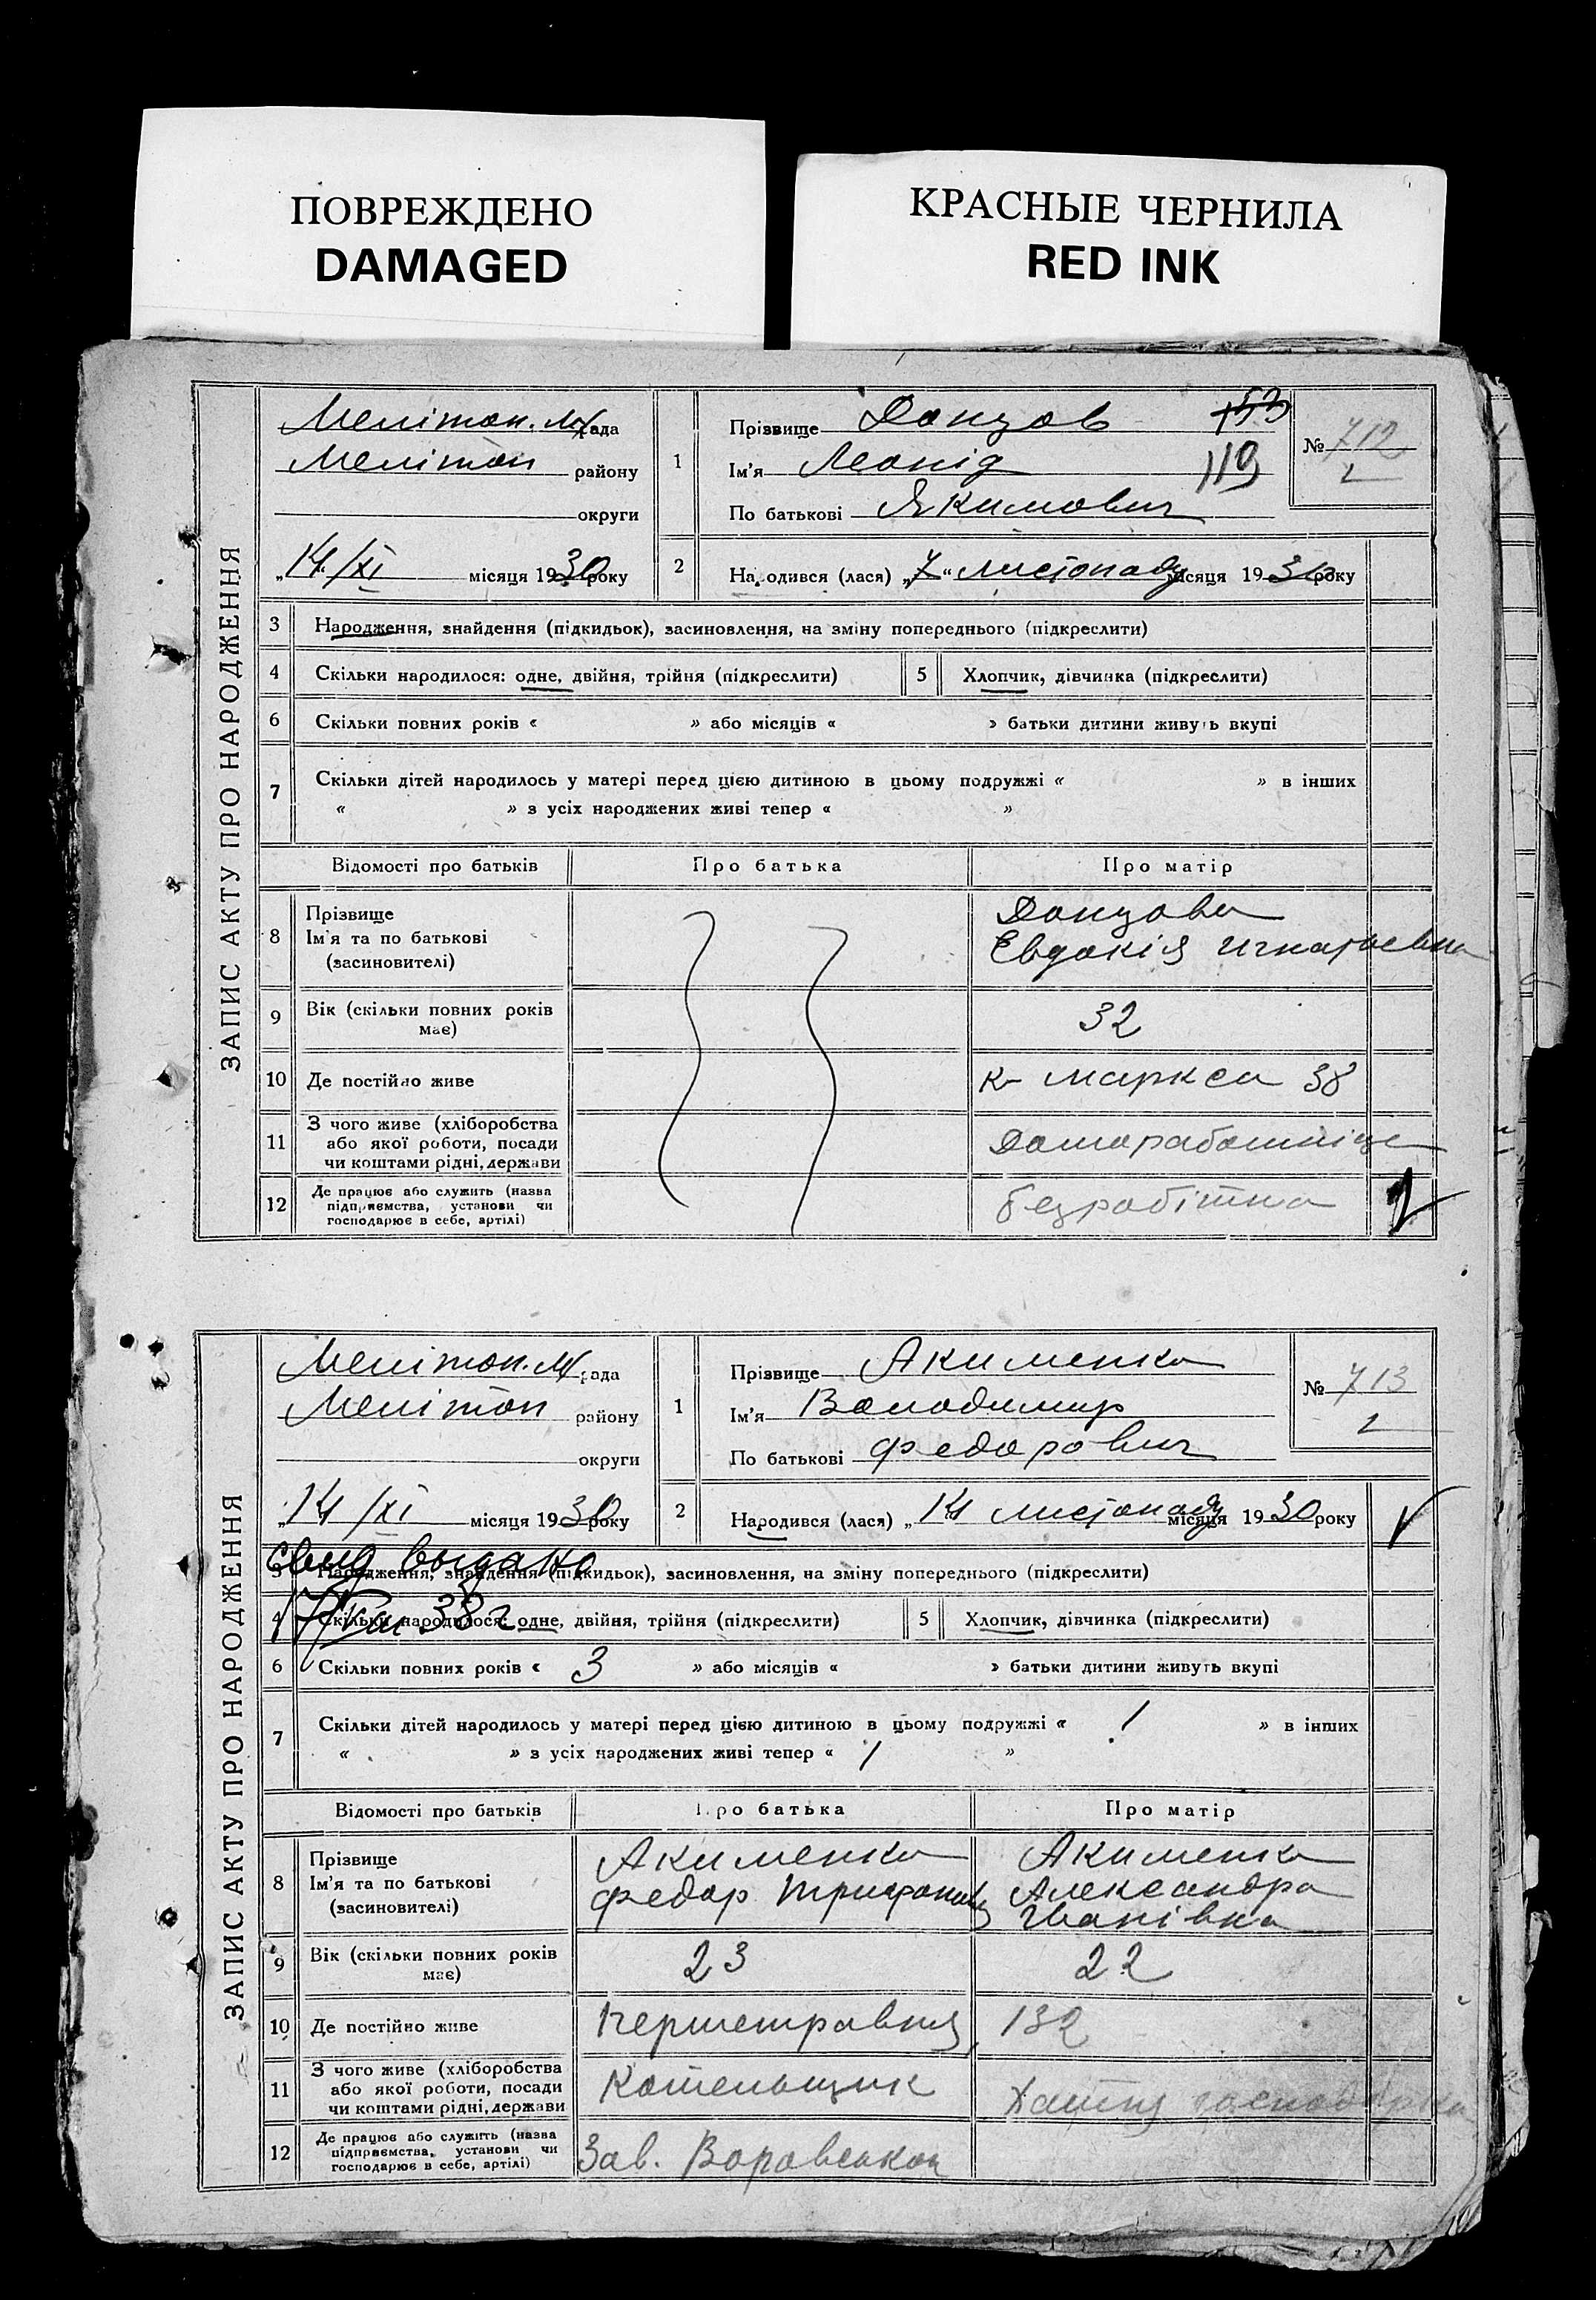 ПОВРЕЖДЕНО
DAMAGED
КРАСНЫЕ ЧЕРНИЛА
RED INK
ЗАПИС АКТУ ПРО НАРОДЖЕННЯ
Мелітоп. М/рада
Мелітоп району
округи
„14/XI місяця 1930 року
1
Прізвище Донцов
Ім'я Леонід 119
По батькові Якимович
№ 712
2
2
Народився (лася) „7“ листопаду місяця 1930 року
3 Народження, знайдення (підкидьок), засиновлення, на зміну попереднього (підкреслити)
4 Скільки народилося: одне, двійня, трійня (підкреслити) 5 Хлопчик, дівчинка (підкреслити)
6 Скільки повних років « » або місяців « » батьки дитини живуть вкупі
7 Скільки дітей народилось у матері перед цією дитиною в цьому подружжі « » в інших
« » з усіх народжених живі тепер « »
Відомості про батьків Про батька Про матір
8 Прізвище
Ім'я та по батькові
(засиновителі)
Донцова
Евдокія Игнатьевна
9 Вік (скільки повних років
має)
32
10 Де постійно живе К-Маркса 38
11 З чого живе (хліборобства
або якої роботи, посади
чи коштами рідні, держави
Домоработніце
12 Де працює або служить (назва
підприємства, установи чи
господарює в себе, артілі)
безробітна
ЗАПИС АКТУ ПРО НАРОДЖЕННЯ
Мелітоп. М/рада
Мелітоп району
округи
„14/XI місяця 1930 року
1
Прізвище Акименко
Ім'я Володимир
По батькові Федорович
№ 713
2
2
Народився (лася) „14 листопаду місяця 1930 року
свид выдано
38 г
3 Народження, знайдення (підкидьок), засиновлення, на зміну попереднього (підкреслити)
4 Скільки народилося: одне, двійня, трійня (підкреслити) 5 Хлопчик, дівчинка (підкреслити)
6 Скільки повних років « 3 » або місяців « » батьки дитини живуть вкупі
7 Скільки дітей народилось у матері перед цією дитиною в цьому подружжі « 1 » в інших
« » з усіх народжених живі тепер « 1 »
Відомості про батьків Про батька Про матір
8 Прізвище
Ім'я та по батькові
(засиновителі)
Акименко
Федор
Акименко
Александра
Іванівна
9 Вік (скільки повних років
має)
23 22
10 Де постійно живе Першетравня, 132
11 З чого живе (хліборобства
або якої роботи, посади
чи коштами рідні, держави
Котельщик Хатня господарка
12 Де працює або служить (назва
підприємства, установи чи
господарює в себе, артілі)
Зав. Воровського